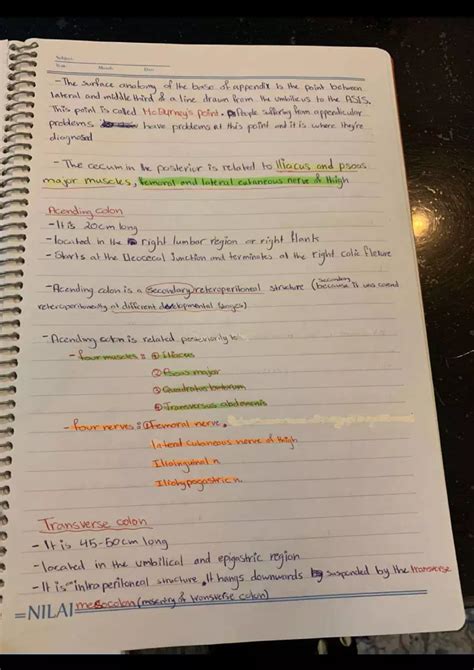 Subject:
Year Month Date
- The surface anatomy of the base of appendix is the point between
lateral and middle third of a line drawn from the umbilicus to the ASIS.
This point is called McBurney's point. People suffering from appendicular
problems have problems at this point and it is where they're
diagnosed
- The cecum in the posterior is related to Iliacus and psoas
major muscles, femoral and lateral cutaneous nerve of thigh
Acending colon
- It is 20cm long
- located in the right lumbar region or right flank
- Starts at the Ileocecal Junction and terminates at the right colic flexure
- Acending colon is a secondary reteroperitoneal structure (because it was
secondary
reteroperitoneally at different developmental stages)
- Acending colon is related
- four muscles: ① Iliacus
② Psoas major
③ Quadratus lumborum
④ Transversus abdomenis
- four nerves: ① Femoral nerve.
lateral cutaneous nerve of thigh
Ilioinguinal n.
Iliohypogastric n.
Transverse colon
- It is 45-50cm long
- located in the umbilical and epigastric region
- It is intraperitoneal structure. It hangs downwards suspended by the transverse
mesocolon (mesentry of transverse colon)
NILAI